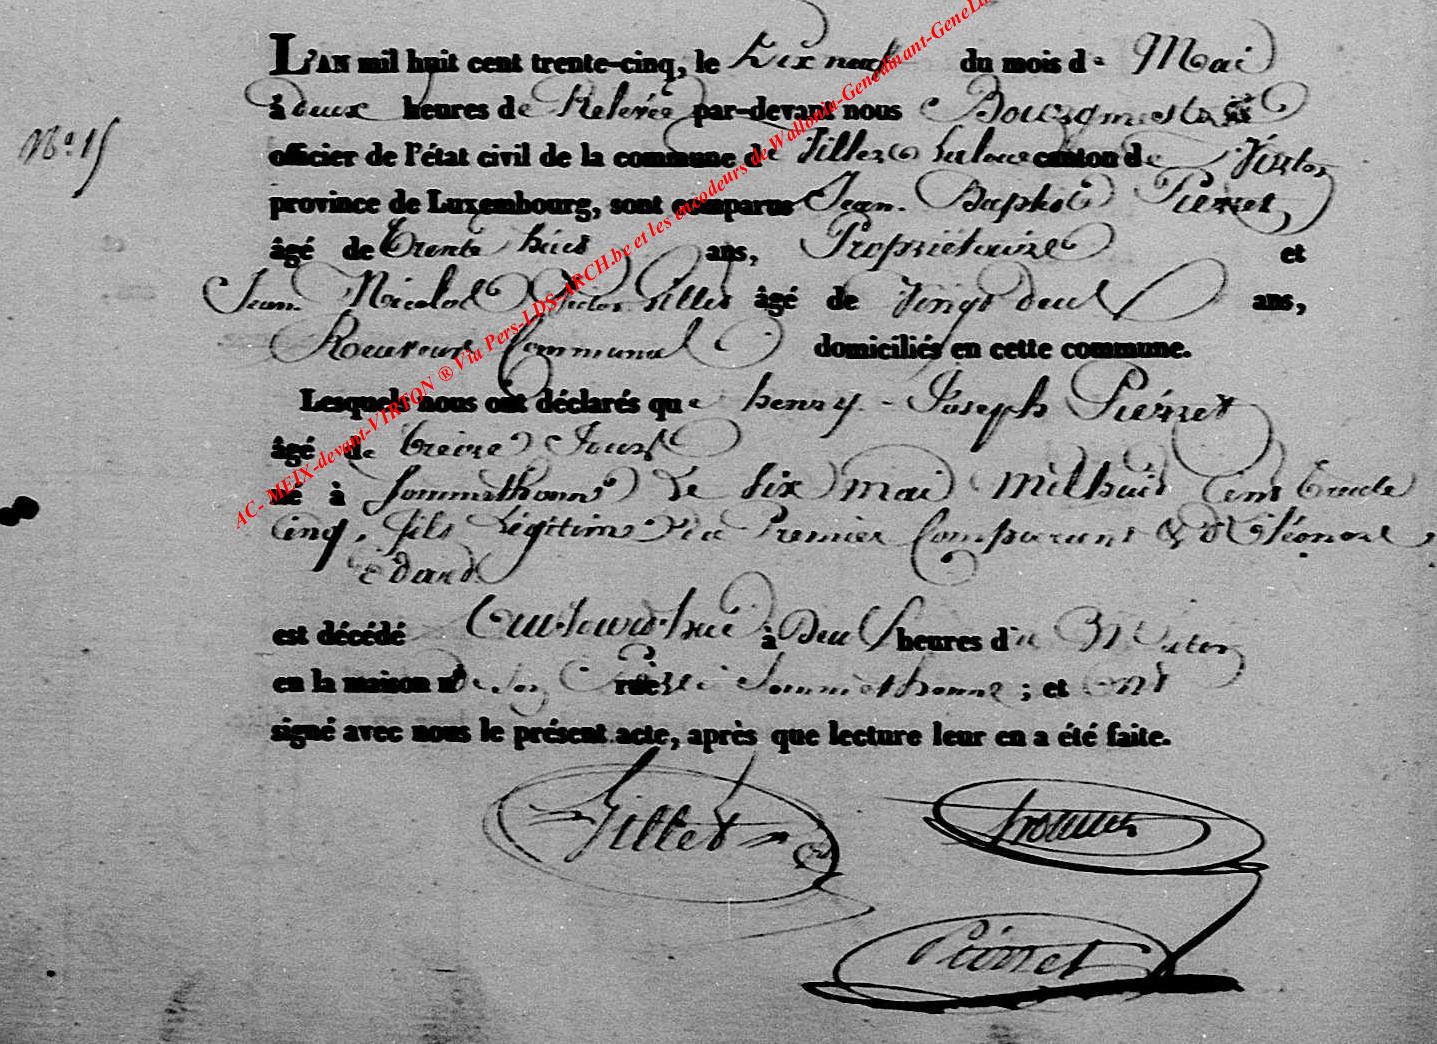 L'AN mil huit cent trente-cinq, le Dix neuf du mois de Mai
à deux heures de Relevée par-devant nous Bourgmestre
N° 15
officier de l'état civil de la commune de Villers la loue canton de Virton
province de Luxembourg, sont comparus Jean Baptiste Pierret
âgé de trente huit ans, Propriétaire et
Jean Nicolas Victor Gillet âgé de Vingt deux ans,
Receveur Communal domiciliés en cette commune.
Lesquels nous ont déclarés que henry Joseph Pierret
âgé de treize Jours
né à Sommethonne le six mai mil huit cent trente
cinq, fils légitime du Premier Comparant & d'Eléonore
Edard
est décédé aujourd'hui à Deux heures du Matin
en la maison n° de son rue de Sommethonne ; et ont
signé avec nous le présent acte, après que lecture leur en a été faite.
Gillet
Pierret
AC- MEIX-devant-VIRTON ® Via Pers-LDS-ARCH.be et les encodeurs de Wallonia-Genedinant-GeneLux